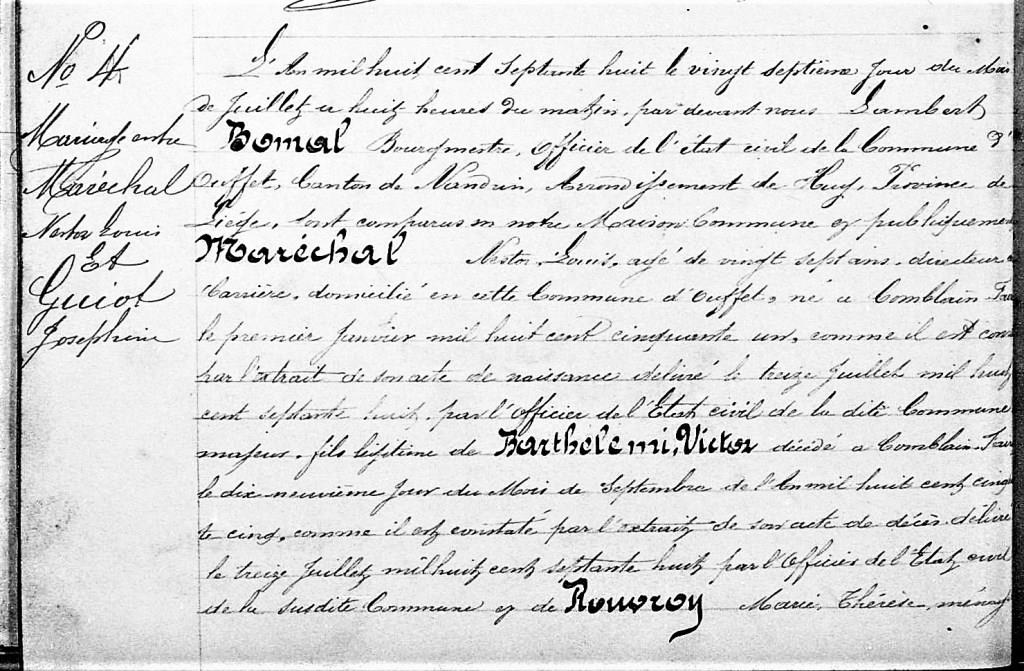 No 4
Mariage entre
Maréchal
Nestor Louis
Et
Guiot
Josephine
L'An mil huit cent septante huit le vingt septième jour du Mois
de Juillet a huit heures du matin, par devant nous Lambert
Bomal Bourgmestre, Officier de l'état civil de la Commune d'
Ouffet, Canton de Nandrin, Arrondissement de Huy, Province de
Liége, sont comparus en notre Maison Commune et publiquement
Maréchal Nestor, Louis, agé de vingt sept ans, directeur
Carrière, domicilié en cette Commune d'Ouffet, né a Comblain-
le premier Janvier mil huit cent cinquante un, comme il est
par l'extrait de son acte de naissance delivré le treize Juillet mil huit
cent septante huit, par l'Officier de l'Etat civil de la dite Commune
majeur, fils légitime de Barthélemi, Victor décédé a Comblain-
le dix neuvième jour du Mois de Septembre de l'An mil huit cent
te cinq, comme il est constaté par l'extrait de son acte de décès délivré
le treize Juillet mil huit cent septante huit par l'Officier de l'Etat civil
de la susdite Commune et de Rouvroy Marie, Thérèse,